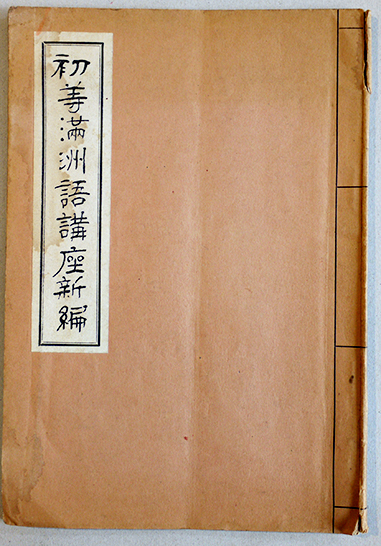 初等滿洲語講座新編